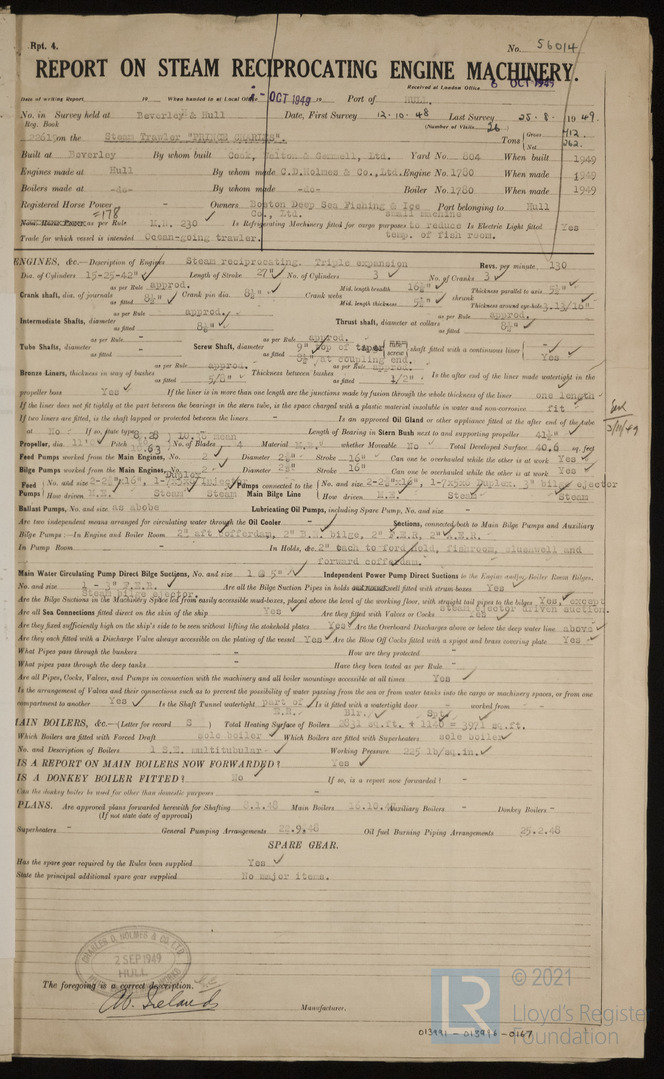 Rpt. 4.
No. 56014
REPORT ON STEAM RECIPROCATING ENGINE MACHINERY.
Received at London Office 6 OCT 1949
Date of writing Report 19 When handed in at Local Office - OCT 1949 19 Port of HULL.
No. in Survey held at Beverley & Hull Date, First Survey 12.10.48 Last Survey 25.8. 1949.
Reg. Book (Number of Visits 26)
on the Steam Trawler "PRINCE CHARLES". Tons Gross 412 Net 262.
Built at Beverley By whom built Cook, Welton & Gemmell, Ltd. Yard No. 804 When built 1949
Engines made at Hull By whom made C.D.Holmes & Co., Ltd. Engine No. 1780 When made 1949
Boilers made at -do- By whom made -do- Boiler No. 1780 When made 1949
Registered Horse Power - Owners Boston Deep Sea Fishing & Ice Co., Ltd. Port belonging to Hull
=178
Nom. Horse Power as per Rule M.N. 230 Is Refrigerating Machinery fitted for cargo purposes small machine to reduce temp. of fish room. Is Electric Light fitted Yes
Trade for which vessel is intended Ocean-going trawler.
ENGINES, &c.—Description of Engines Steam reciprocating. Triple expansion Revs. per minute 130
Dia. of Cylinders 15-25-42" Length of Stroke 27" No. of Cylinders 3 No. of Cranks 3
Crank shaft, dia. of journals as per Rule approd. as fitted 8½" Crank pin dia. 8½" Crank webs Mid. length breadth 16½" Mid. length thickness 5½" shrunk Thickness parallel to axis 5½" Thickness around eye-hole 3.13/16"
Intermediate Shafts, diameter as per Rule approd. as fitted 8¼" Thrust shaft, diameter at collars as per Rule approd. as fitted 8½"
Tube Shafts, diameter as per Rule - as fitted Screw Shaft, diameter as per Rule approd. as fitted 9" top of taper 8½" at coupling end. Is the screw shaft fitted with a continuous liner Yes
Bronze Liners, thickness in way of bushes as per Rule approd. as fitted 5/8" Thickness between bushes as per Rule approd. as fitted 1/2" Is the after end of the liner made watertight in the
propeller boss Yes If the liner is in more than one length are the junctions made by fusion through the whole thickness of the liner one length
If the liner does not fit tightly at the part between the bearings in the stern tube, is the space charged with a plastic material insoluble in water and non-corrosive fit
If two liners are fitted, is the shaft lapped or protected between the liners - Is an approved Oil Gland or other appliance fitted at the after end of the tube
shaft No If so, state type Length of Bearing in Stern Bush next to and supporting propeller 41½"
Propeller, dia. 11'0" Pitch 10.63 10.46 mean No. of Blades 4 Material whether Moveable No Total Developed Surface 40.6 sq. feet
Feed Pumps worked from the Main Engines, No. 2 Diameter 2¾" Stroke 16" Can one be overhauled while the other is at work Yes
Bilge Pumps worked from the Main Engines, No. 2 Diameter 2¾" Stroke 16" Can one be overhauled while the other is at work Yes
Feed Pumps No. and size 2-2¾"x16", Duplex Injector How driven M.E. Steam Steam Pumps connected to the Main Bilge Line No. and size 2-2¾"x16", 1-7x5x6 Duplex. 3" bilge ejector How driven M.E. Steam Steam
Ballast Pumps, No. and size as above Lubricating Oil Pumps, including Spare Pump, No. and size -
Are two independent means arranged for circulating water through the Oil Cooler - Suctions, connected both to Main Bilge Pumps and Auxiliary
Bilge Pumps:—In Engine and Boiler Room 2" aft cofferdam, 2" bilge, 2"
In Pump Room - In Holds, &c. 2" each to ford hold, fishroom, slushwell and
forward cofferdam.
Main Water Circulating Pump Direct Bilge Suctions, No. and size 1 @ 5" Independent Power Pump Direct Suctions to the Engine and/or Boiler Room Bilges,
No. and size 1 - 3" Steam bilge ejector. Are all the Bilge Suction Pipes in holds and well fitted with strum boxes Yes
Are the Bilge Suctions in the Machinery Space led from easily accessible mud-boxes, placed above the level of the working floor, with straight tail pipes to the bilges Yes, except steam ejector driven suction.
Are all Sea Connections fitted direct on the skin of the ship Yes Are they fitted with Valves or Cocks Yes
Are they fixed sufficiently high on the ship's side to be seen without lifting the stokehold plates Yes Are the Overboard Discharges above or below the deep water line above
Are they each fitted with a Discharge Valve always accessible on the plating of the vessel Yes Are the Blow Off Cocks fitted with a spigot and brass covering plate Yes
What Pipes pass through the bunkers - How are they protected -
What pipes pass through the deep tanks - Have they been tested as per Rule -
Are all Pipes, Cocks, Valves, and Pumps in connection with the machinery and all boiler mountings accessible at all times Yes
Is the arrangement of Valves and their connections such as to prevent the possibility of water passing from the sea or from water tanks into the cargo or machinery spaces, or from one
compartment to another Yes Is the Shaft Tunnel watertight part of Is it fitted with a watertight door - worked from -
MAIN BOILERS, &c.—(Letter for record S ) Total Heating Surface of Boilers Blr. 2831 sq.ft. + Spt. 1140 = 3971 sq.ft.
Which Boilers are fitted with Forced Draft sole boiler Which Boilers are fitted with Superheaters sole boiler
No. and Description of Boilers 1 S.E. multitubular Working Pressure 225 lb/sq.in.
IS A REPORT ON MAIN BOILERS NOW FORWARDED? Yes
IS A DONKEY BOILER FITTED? No If so, is a report now forwarded? -
Can the donkey boiler be used for other than domestic purposes -
PLANS. Are approved plans forwarded herewith for Shafting 8.1.48 Main Boilers 18.10.48 Auxiliary Boilers - Donkey Boilers -
(If not state date of approval)
Superheaters - General Pumping Arrangements 22.9.48 Oil fuel Burning Piping Arrangements 25.2.48
SPARE GEAR.
Has the spare gear required by the Rules been supplied Yes
State the principal additional spare gear supplied No major items.
3/11/49
CHARLES D. HOLMES & CO. LTD
2 SEP 1949
HULL
The foregoing is a correct description.
Manufacturer.
LR
© 2021
Lloyd's Register
Foundation
013991 - 013996 - 0167